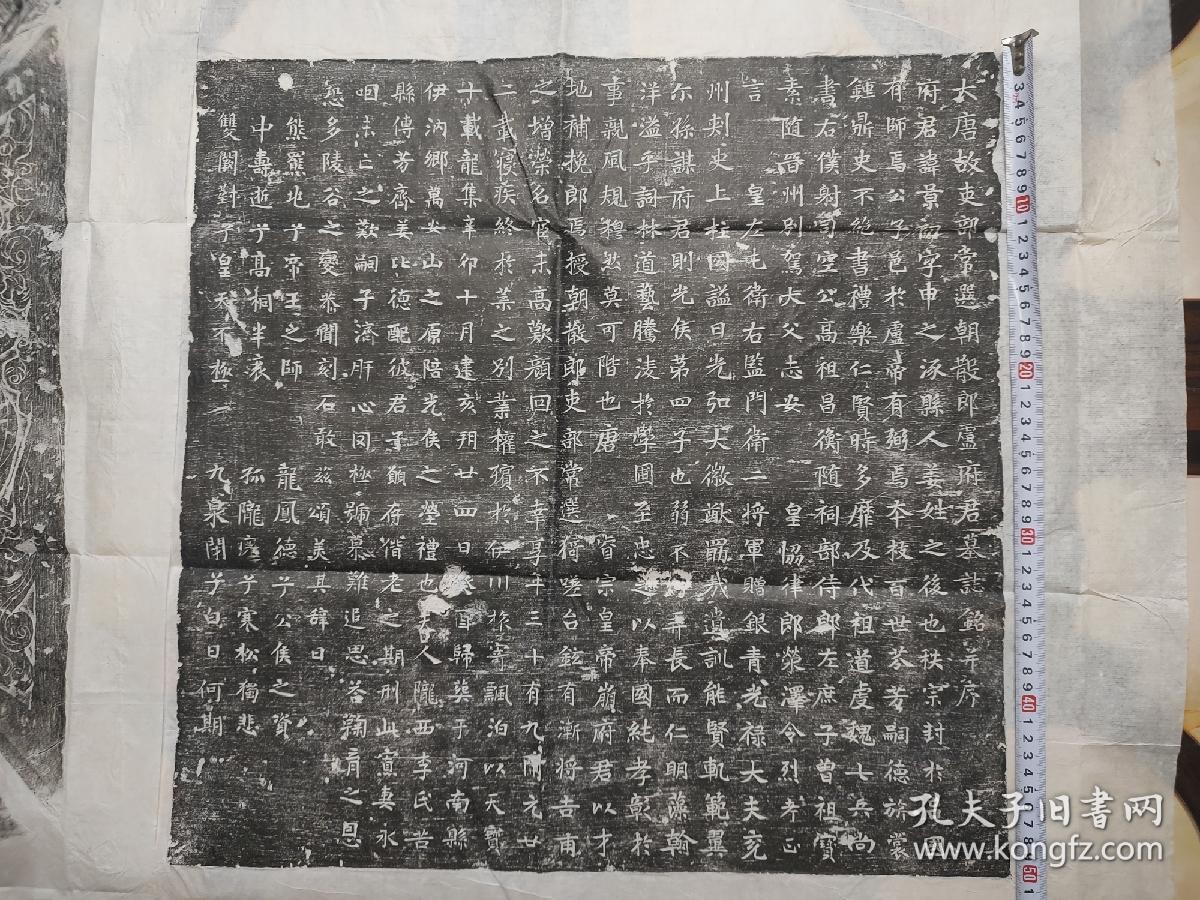 大唐故吏部常選朝散郎盧府君墓誌銘并序
府君諱景字申之涿縣人姜姓之後也秩宗封於國
有師焉公子邑於盧帝有弼焉本枝百世芬芳嗣德旂裳
鍾鼎史不絕書禮樂仁賢時多靡及代祖道虔魏七兵尚
書右僕射司空公高祖昌衡隨祠部侍郎左庶子曾祖寶
素隨晉州別駕大父志安 皇協律郎滎澤令烈考正
言 皇左屯衛右監門衛二將軍贈銀青光祿大夫兗
州刾史上柱國謚曰光弘大徽猷罷哉遺訓能賢軌範翼
尒孫謀府君則光侯第四子也弱不弄長而仁明藻翰
洋溢乎詞林道藝騰淩於學圃至忠以奉國純孝彰於
事親風規穆然莫可階也唐 睿宗皇帝崩府君以才
地補挽郎焉授朝散郎吏部常選猗嗟台鉉有漸將吉甫
之增榮名官未高歎顏回之不幸享年三十有九開元廿
二載寢疾終於葉之別業權殯於伊川旅寄飄泊以天寶
十載龍集辛卯十月建亥朔廿四日癸酉歸葬于河南縣
伊汭鄉萬安山之原陪光侯之塋禮也夫人隴西李氏苦
縣傳芳齊姜比德配彼君子簡存偕老之期刑此寡妻永
咽未亡之歎嗣子濟肝心罔極號慕難追思荅鞠育之恩
恐多陵谷之變恭聞刻石敢茲頌美其辞曰
熊羆兆兮帝王之師 龍鳳德兮公侯之資
中壽逝兮高桐半衰 孤隴痛兮寒松獨悲
雙闕對兮皇天不極 九泉閉兮白日何期
孔夫子旧书网
www.kongfz.com